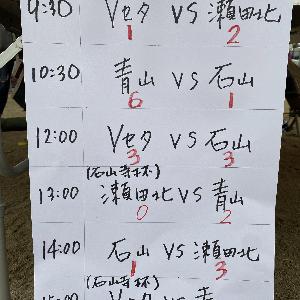 9:30 Vセタ VS 瀬田北
1 2
10:30 青山 VS 石山
6 1
12:00 Vセタ VS 石山
3 3
(石山寺杯)
13:00 瀬田北 VS 青山
0 2
14:00 石山 VS 瀬田北
1 3
(石山寺杯)